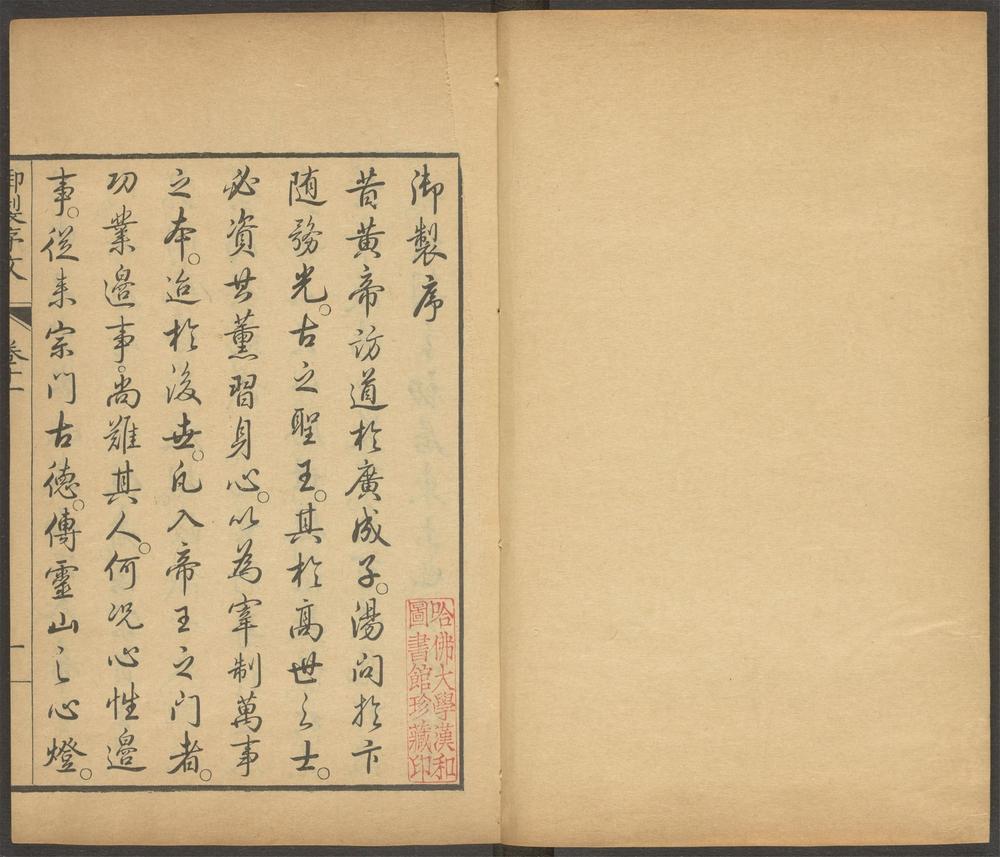 御製序
昔黃帝訪道於廣成子。湯問於卞
随務光。古之聖王。其於高世之士。
必資其薰習身心。以為宰制萬事
之本。迨於後世。凡入帝王之门者。
功業邉事。尚難其人。何况心性邉
事。從来宗门古德。傳靈山之心燈。
御製序文
卷十一
一
哈佛大學漢和
圖書館珍藏印